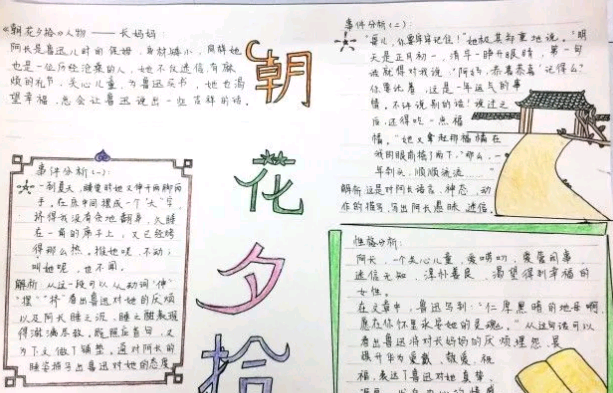 《朝花夕拾》人物——长妈妈：
阿长是鲁迅儿时的保姆，身材矮小，同样她
也是一位历经沧桑的人，她不仅迷信，有麻
烦的礼节，关心儿童，为鲁迅买书，她也渴
望幸福，总会让鲁迅说出一些吉祥的话。
事件分析（一）：
一到夏天，睡觉时她又伸开两脚两
手，在床中间摆成一个“大”字，
挤得我没有余地翻身，久睡
在一角的席子上，又已经烤
得那么热。推她呢，不动；
叫她呢，也不闻。
解析：从这一段可以从动词“伸”
“摆”“挤”看出鲁迅对她的厌烦
以及阿长睡之沉，睡之酣展现
得淋漓尽致，既照应首句，又
为下文做了铺垫，通过对阿长的
睡姿描写出鲁迅对她的态度
朝
花
夕
拾
事件分析（二）：
“哥儿，你牢牢记住！”她极其郑重地说。“明
天是正月初一，清早一睁开眼睛，第一句
话就得对我说：‘阿妈，恭喜恭喜！’记得么？
你要记着，这是一年运气的事
情。不许说别的话！说过之
后，还得吃一点福
橘。”她又拿起那橘子在
我的眼前摇了两下，“那么，一
年到头，顺顺流流……”
解析：这是对阿长语言、神态、动
作的描写，写出阿长愚昧、迷信。
性格分析：
阿长，一个关心儿童，爱唠叨，爱管闲事，
迷信无知，淳朴善良，渴望得到幸福的
女性。
在文章中，鲁迅写到：“仁厚黑暗的地母啊，
愿在你怀里永安她的灵魂。”从这句话可以
看出鲁迅将对长妈妈的厌烦
福，表达了鲁迅对她真挚、